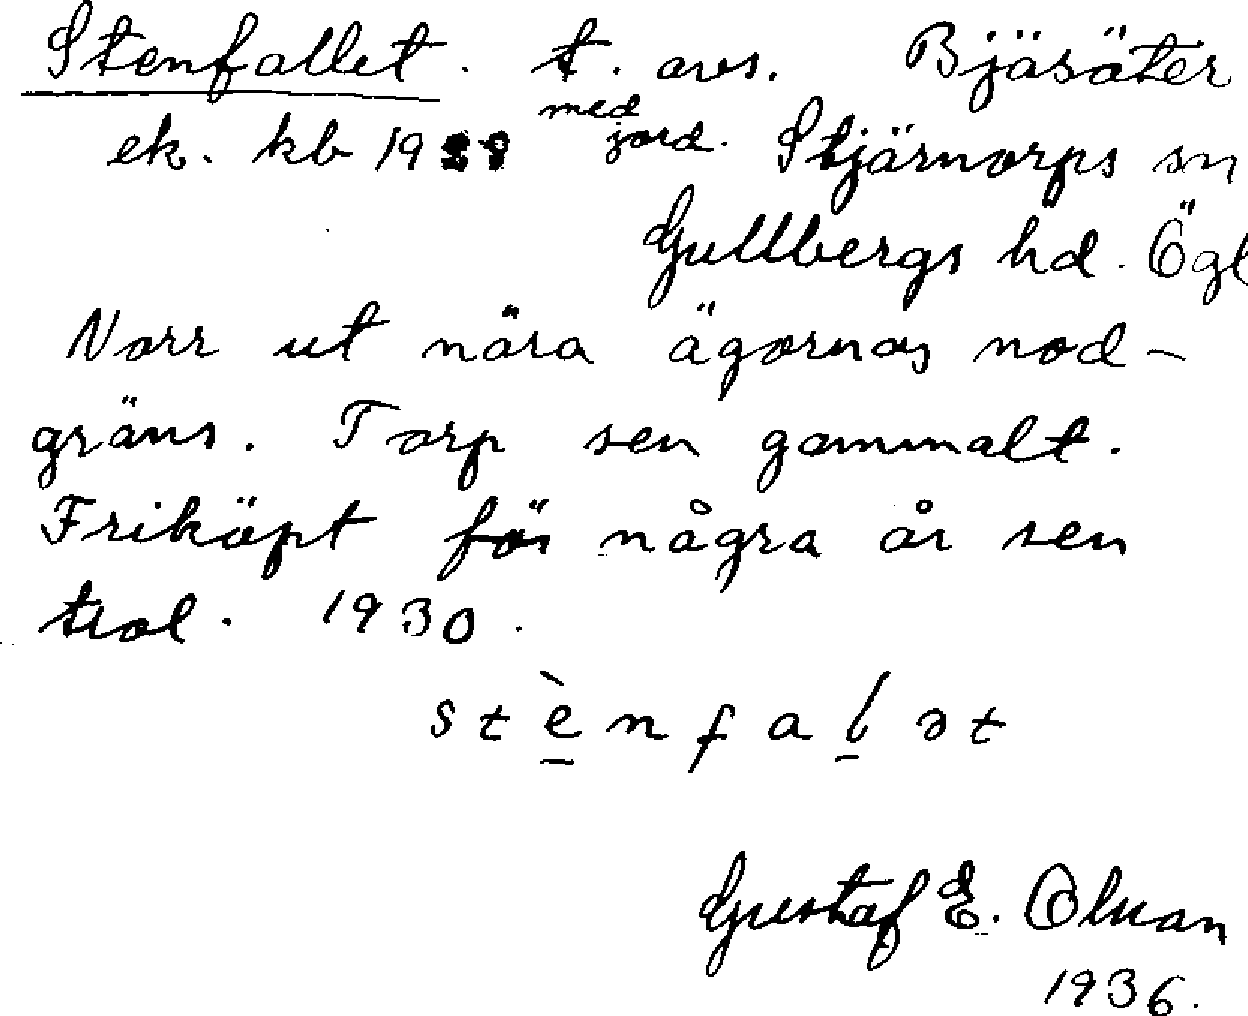 Stenfallet. t. avs. Bjäsäter
med jord.
ek. kb 19 Stjärnorps sn
Gullbergs hd. Ögl
Norr ut nära ägornas nod-
gräns. Torp sen gammalt.
Friköpt för några år sen
trol. 1930.
stènfalət
Gustaf E. Olsson
1936.